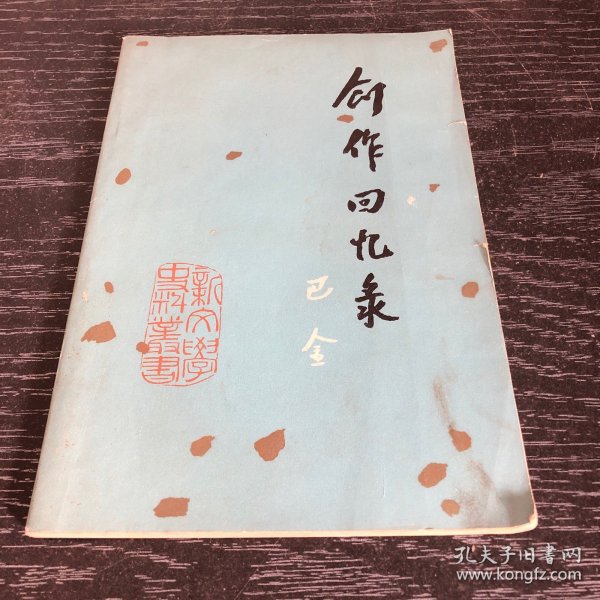 创作回忆录
巴金
新文學
史料叢書
孔夫子旧書网
www.kongfz.com